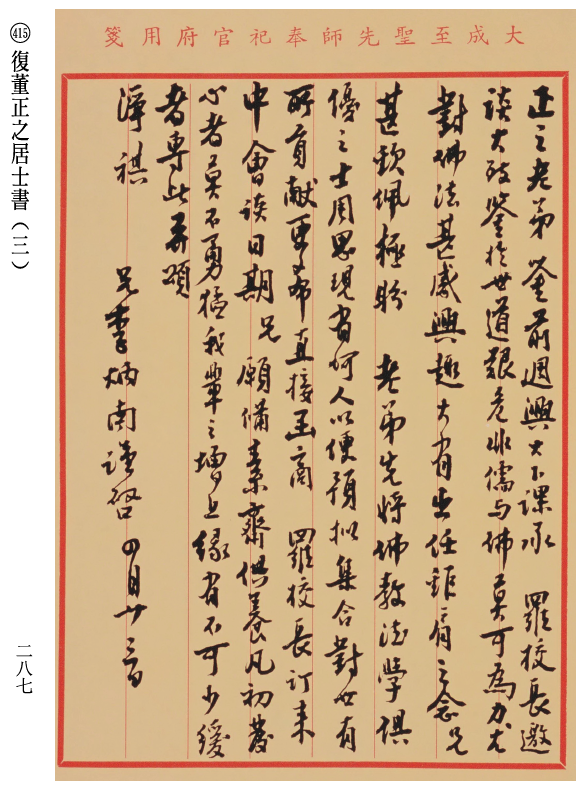 ㊺ 復董正之居士書（三）
二八七
大成至聖先師奉祀官府用箋
正之老弟鑒前週興大下課承　羅校長邀
談大致鑒於世道艱危非儒与佛莫可為力尤
對佛法甚感興趣大有出任鉅肩之念兄
甚欽佩極盼　老弟先將佛教法學俱
優之士周思現有何人以便預擬集合對世有
所貢献更希直接函商　羅校長訂來
中會談日期兄願備素齋供養凡初發
心者莫不勇猛我輩之增上緣有不可少緩
者專此并頌
淨祺　　　兄李炳南謹啓　四月廿